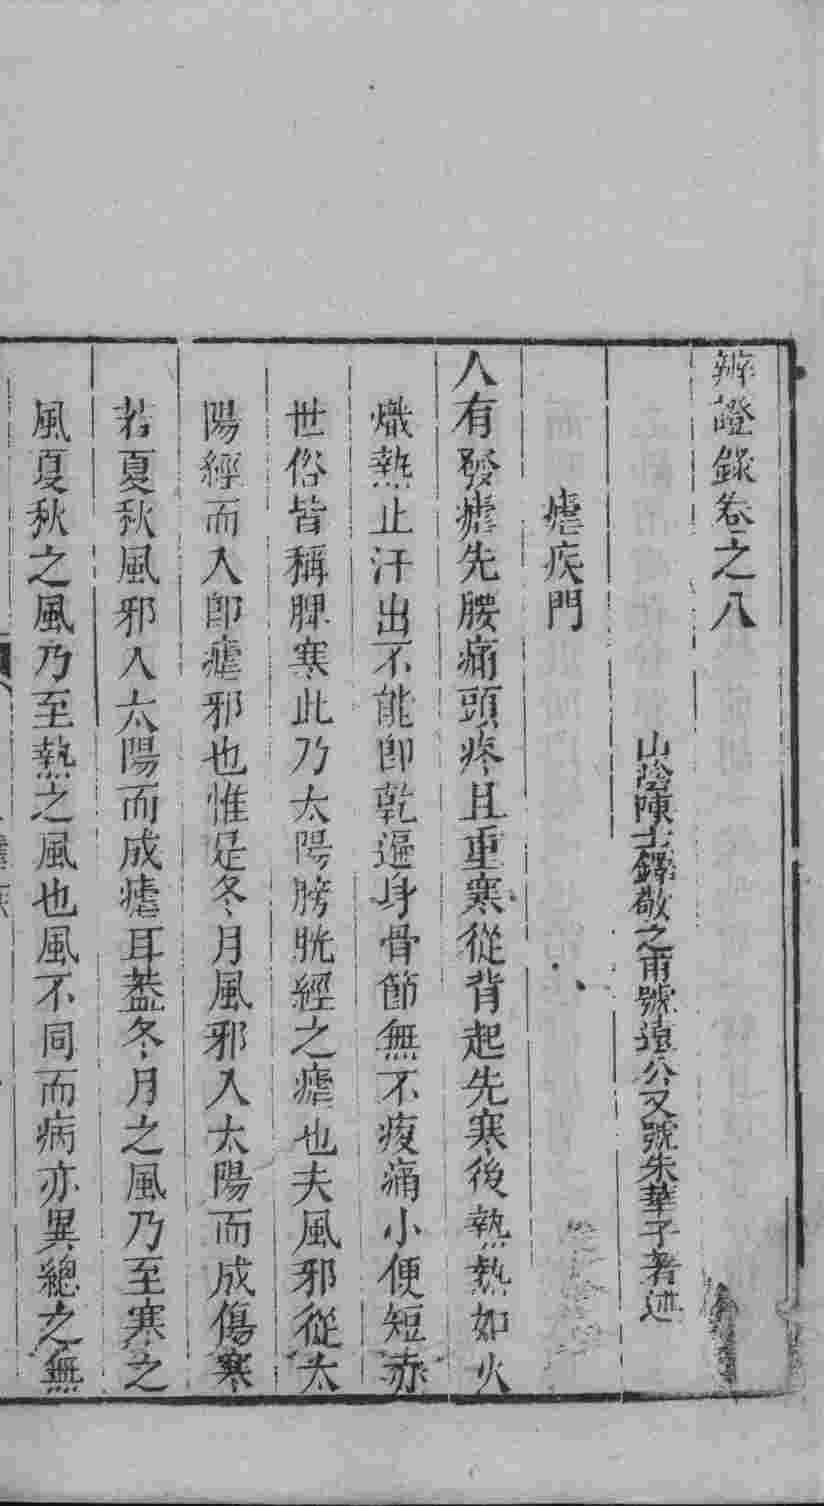 辨證錄卷之八
山陰陳士鐸敬之甫號遠公又號朱華子著述
瘧疾門
人有發瘧先腰痛頭疼且重寒從背起先寒後熱熱如火
熾熱止汗出不能卽乾遍身骨節無不痠痛小便短赤
世俗皆稱脾寒此乃太陽膀胱經之瘧也夫風邪從太
陽經而入卽瘧邪也惟是冬月風邪入太陽而成傷寒
若夏秋風邪入太陽而成瘧耳蓋冬月之風乃至寒之
風夏秋之風乃至熱之風也風不同而病亦異總之無